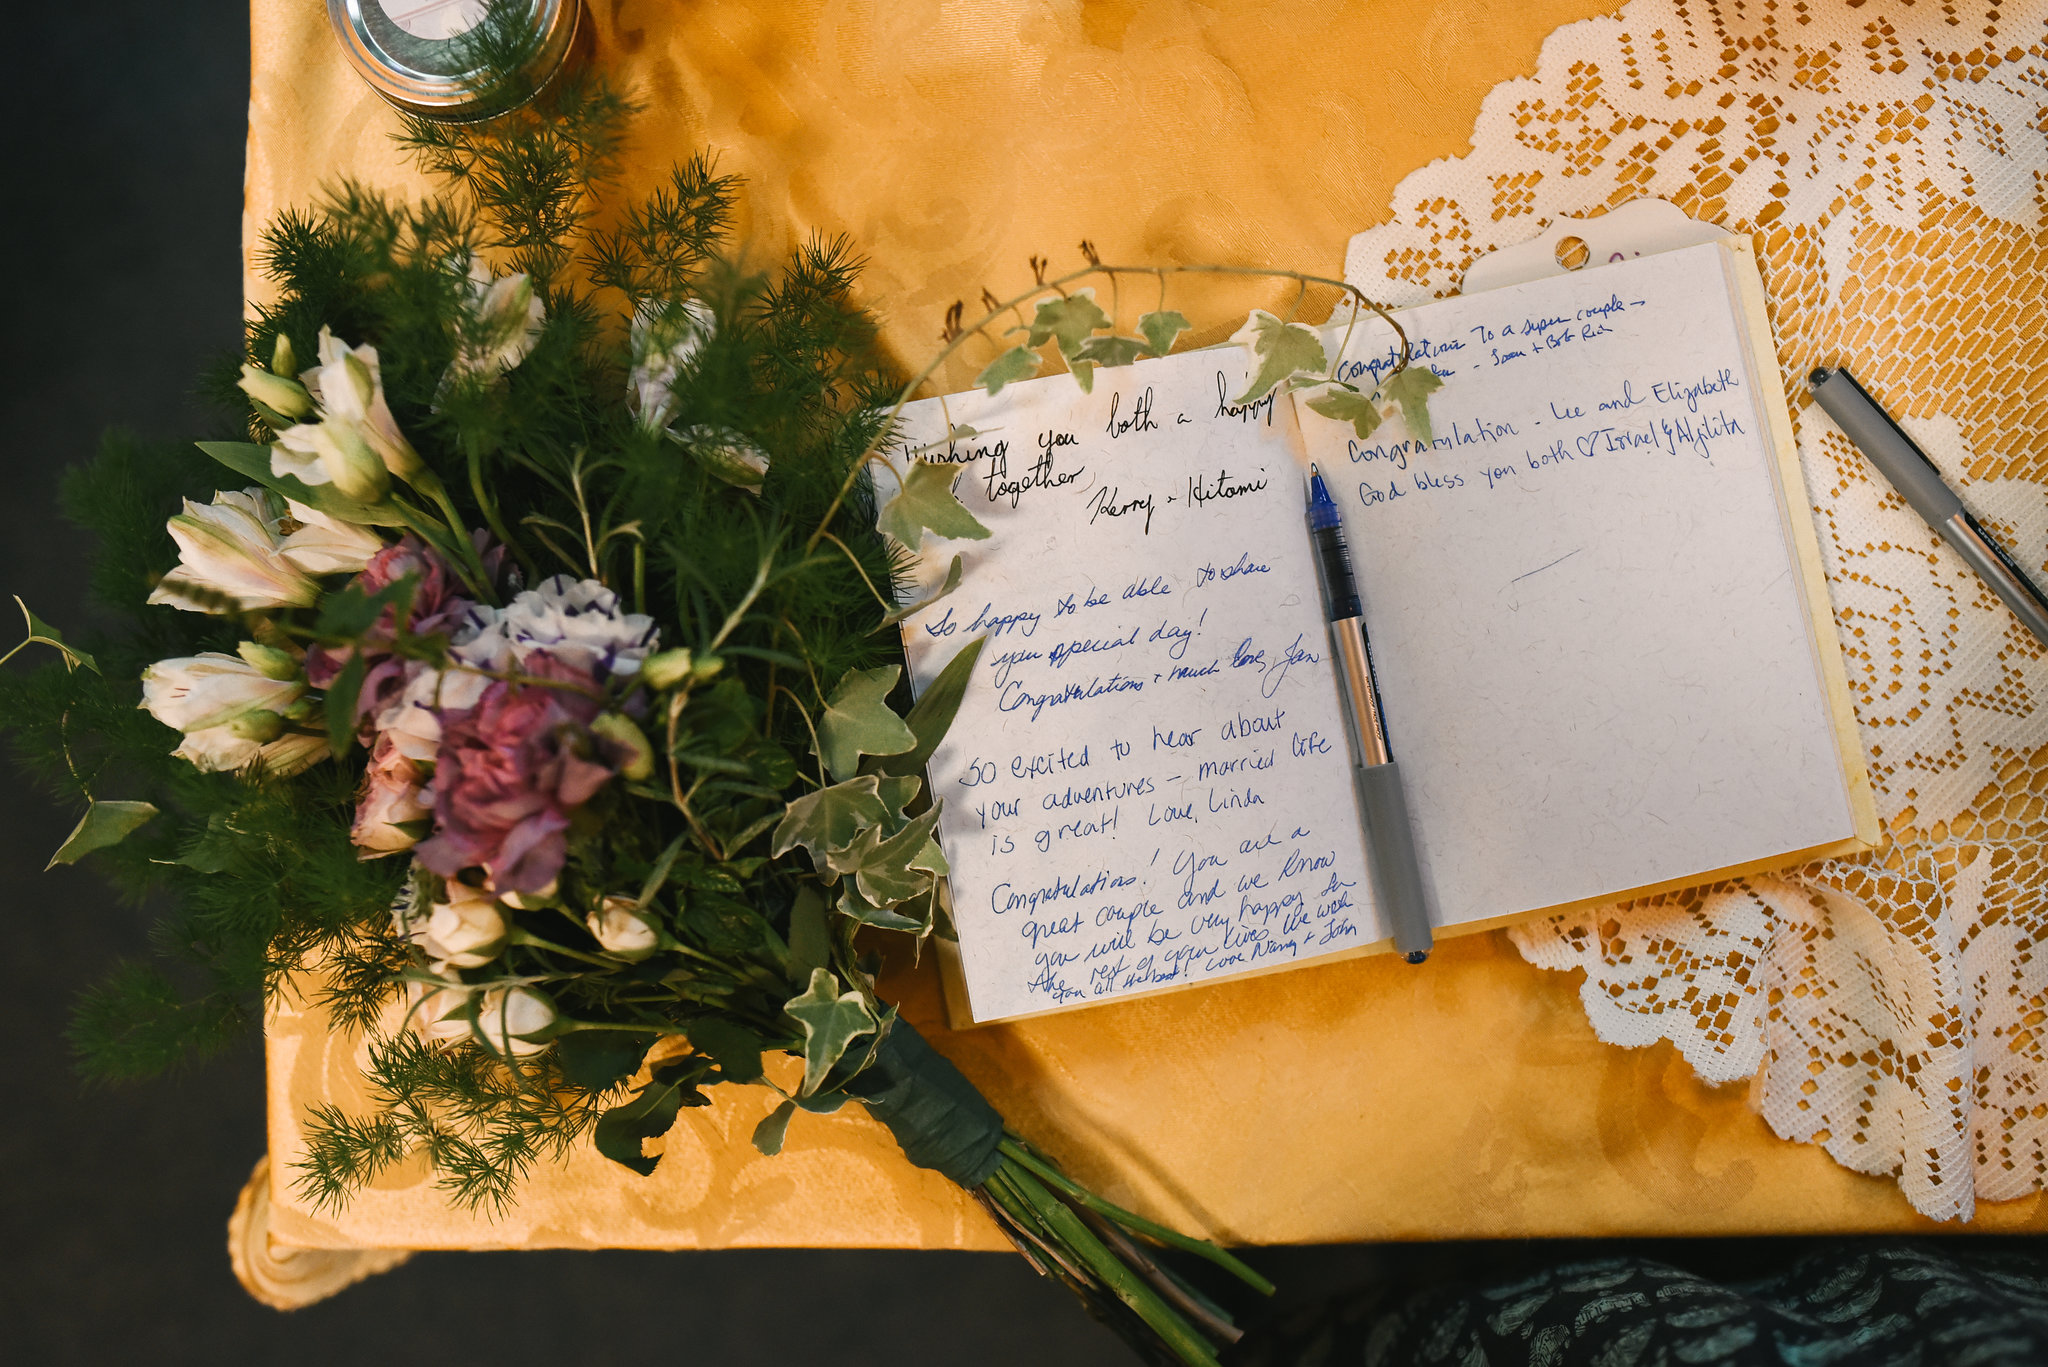 Wishing you both a happy
together
Kerry + Hitomi
So happy to be able to share
your special day!
Congratulations + much love, Jan
SO excited to hear about
your adventures - married life
is great! Love, Linda
Congratulations! You are a
great couple and we know
you will be very happy for
the rest of your lives. We wish
you all the best! Love Nancy + John
Congratulations To a super couple -
- Joan + Bob
Congratulation - Lee and Elizabeth
God bless you both ♡ Israel &